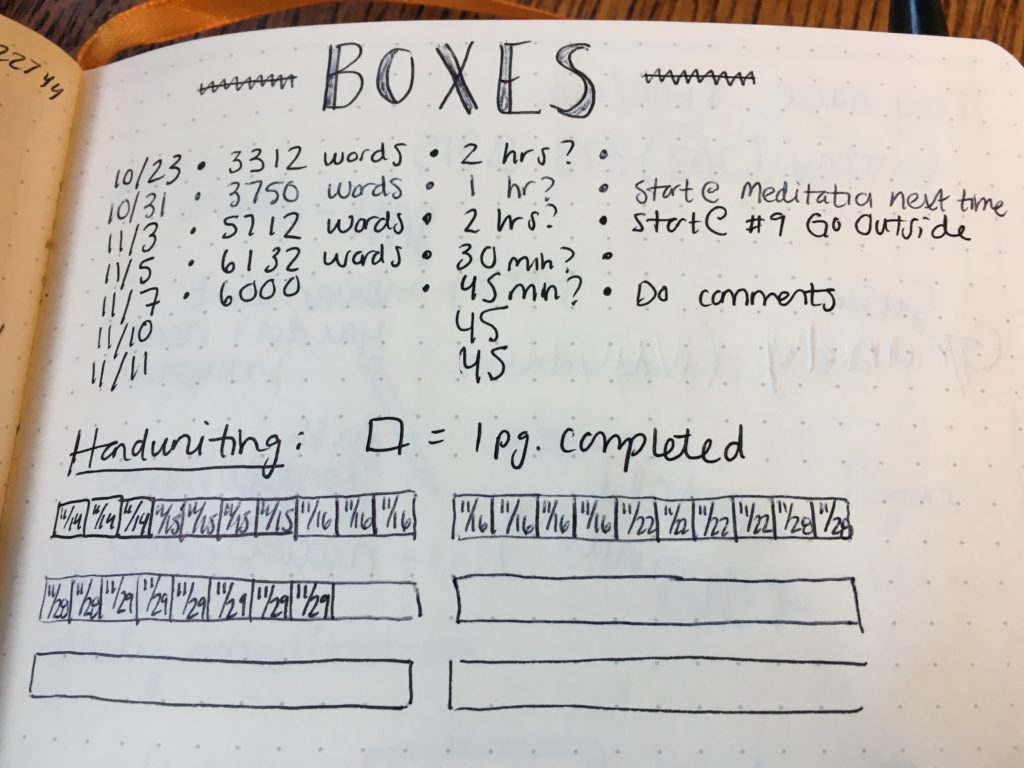 22744
BOXES
10/23 • 3312 words • 2 hrs? •
10/31 • 3750 words • 1 hr? • start @ Meditatio next time
11/3 • 5712 words • 2 hrs? • start @ #9 Go Outside
11/5 • 6132 words • 30 min? •
11/7 • 6000 • 45 min? • Do comments
11/10 45
11/11 45
Handwriting: □ = 1 pg. completed
11/14 11/14 11/14 11/15 11/15 11/15 11/15 11/16 11/16 11/16 11/16 11/16 11/16 11/16 11/22 11/22 11/22 11/22 11/28 11/28
11/28 11/28 11/29 11/29 11/29 11/29 11/29 11/29